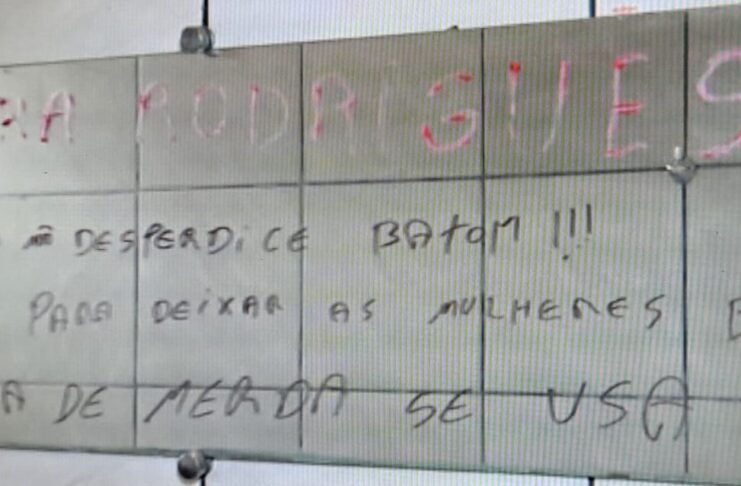 RA RODRIGUES
não DESPERDiCE BAtOM !!!
PARA DEiXAR AS MULHERES
A DE MERDA SE USA